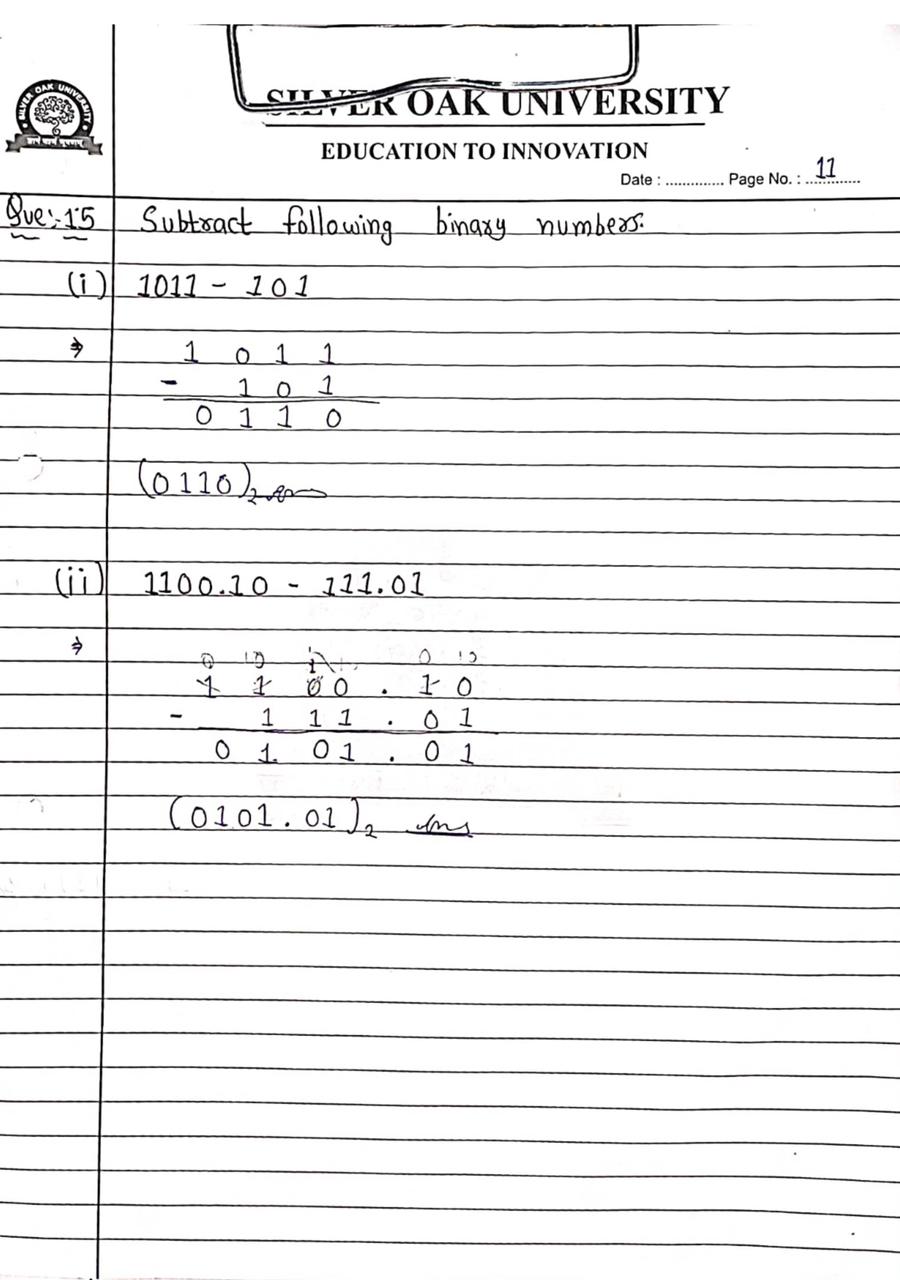 SILVER OAK UNIVERSITY
SILVER OAK UNIVERSITY
EDUCATION TO INNOVATION
Date : .............. Page No. : 11
Que:-15 Subtract following binary numbers.
(i) 1011 - 101
⇒ 1 0 1 1
- 1 0 1
0 1 1 0
(0110)₂ ans
(ii) 1100.10 - 111.01
⇒
0 10 1 0 10
1 1 0 0 . 1 0
- 1 1 1 . 0 1
0 1 0 1 . 0 1
(0101.01)₂ ans